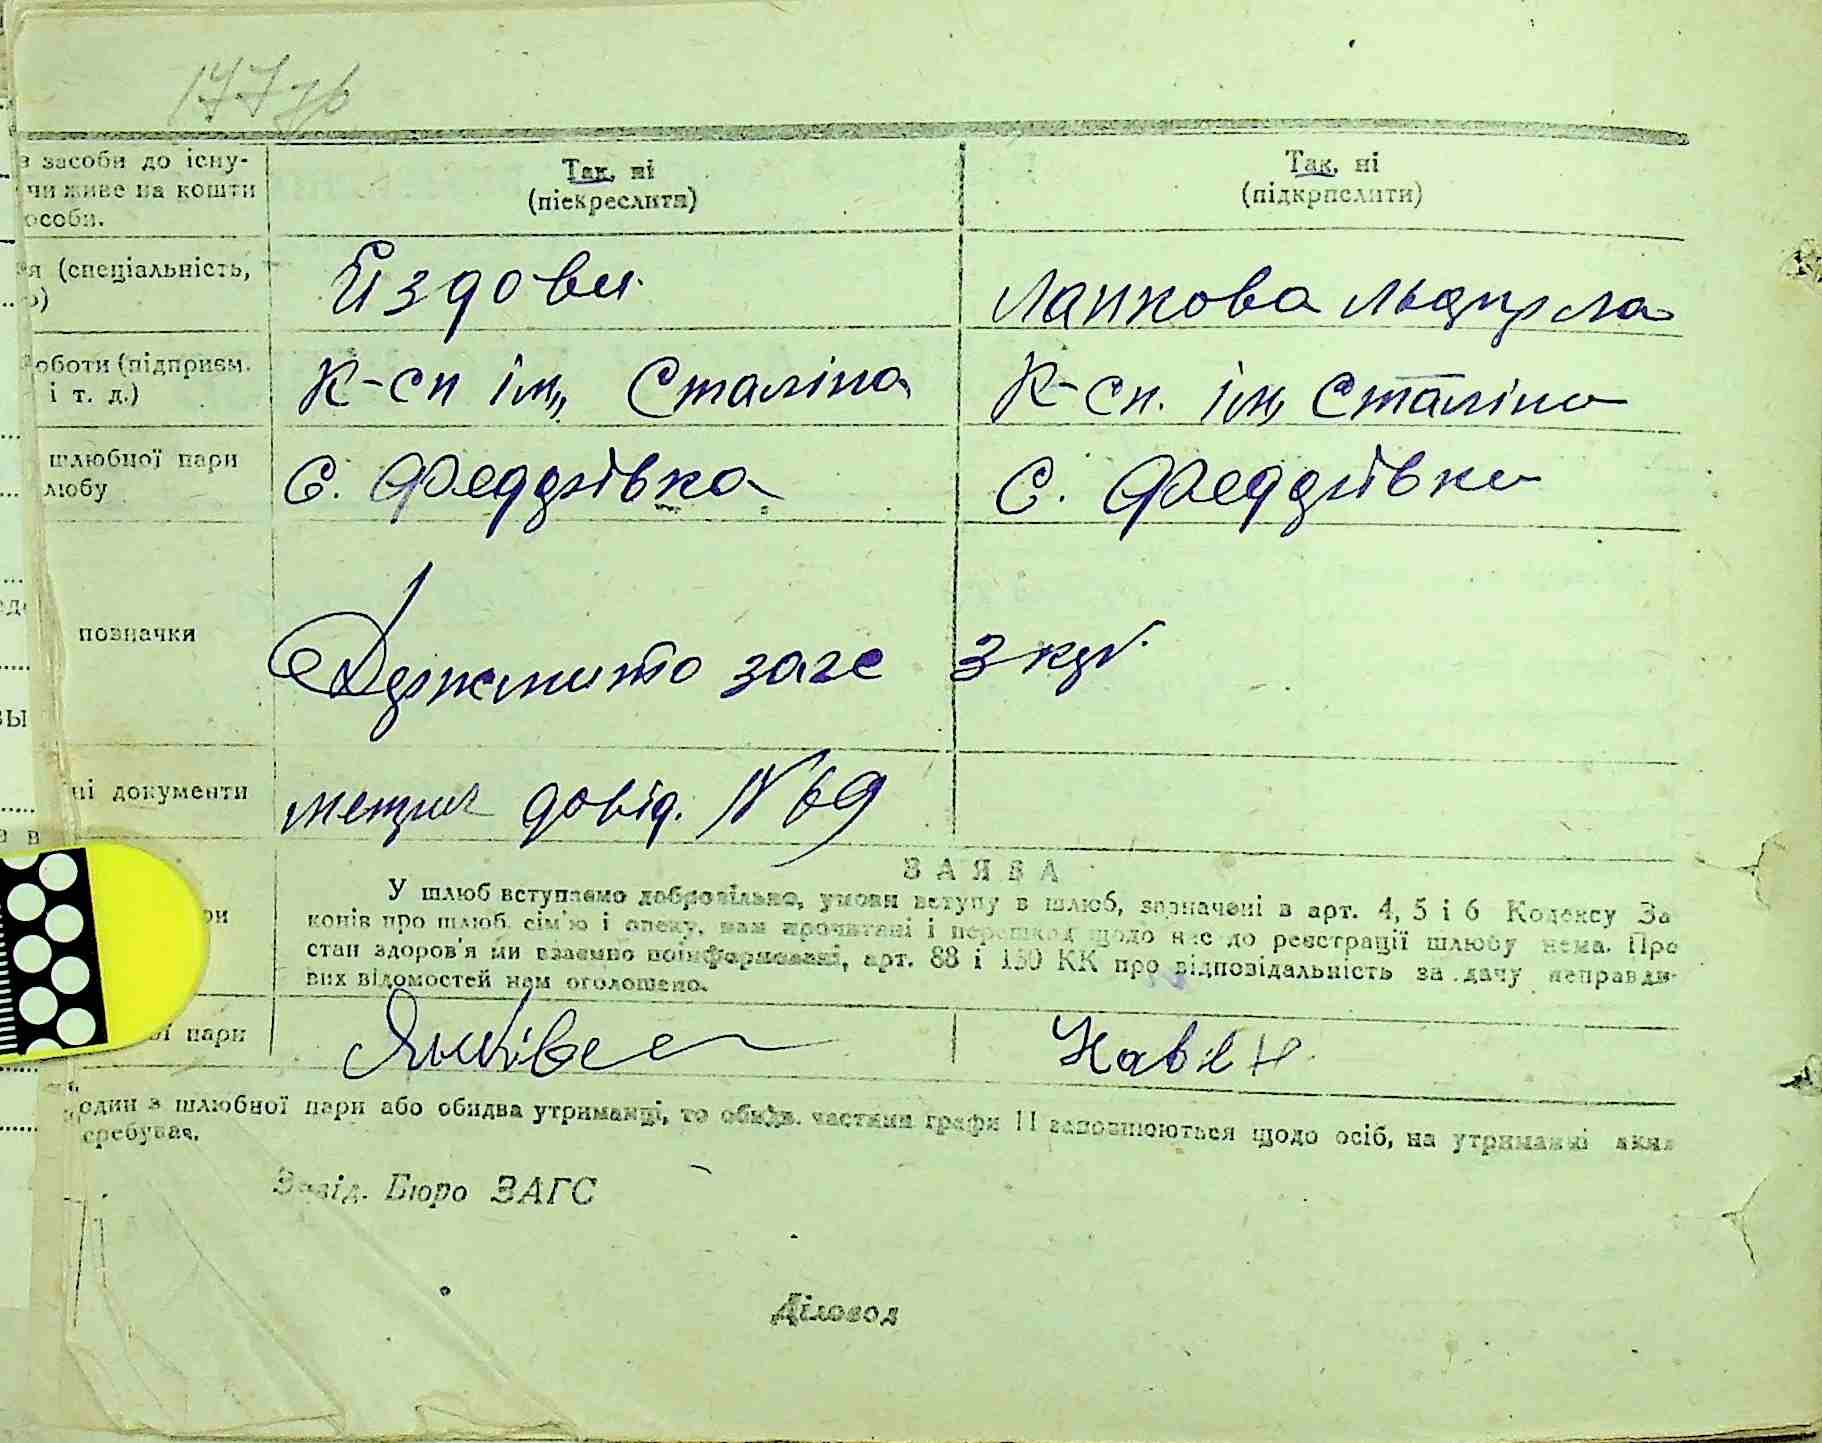 177зв
з засоби до існу-
чи живе на кошти
особи.
Так, ні
(піекреслити)
Так, ні
(підкрпслити)
я (спеціальність,
Їздови
Ланкова
оботи (підприєм.
і т. д.)
К-сп ім, Сталіна
К-сп. ім, Сталіна
шлюбної пари
любу
С. Феддіївка
С. Феддіївка
позначки
Одержмито загс 3 крб.
ні документи
метрич довід. №69
ЗАЯВА
У шлюб вступаємо добровільно, умови вступу в шлюб, зазначені в арт. 4, 5 і 6 Кодексу За
конів про шлюб, сім'ю і опеку, нам прочитані і перешкод щодо нас до реєстрації шлюбу нема. Про
стан здоров'я ми взаємно поінформовані, арт. 88 і 130 КК про відповідальність за дачу неправди-
вих відомостей нам оголошено.
ої пари
один з шлюбної пари або обидва утриманці, то обидв. частини графи 11 заповнюються щодо осіб, на утриманні яких
еребуває.
Завід. Бюро ЗАГС
Діловод